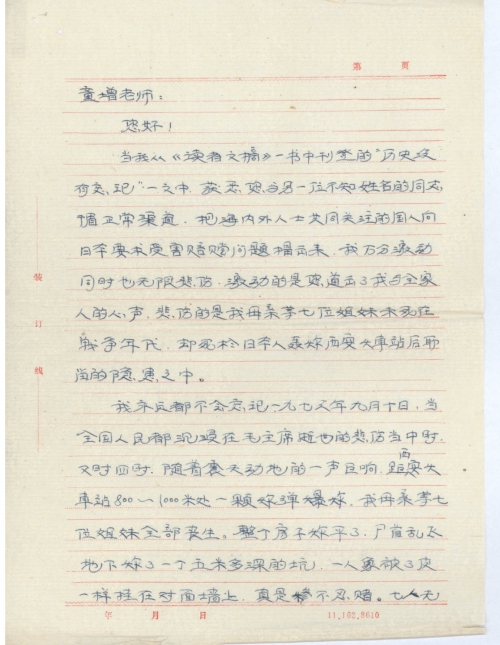 第 页
童增老师：
您好！
当我从《读者文摘》一书中刊登的“历史没
有忘记”一文中，获悉您与另一位不知姓名的同志
正常渠道，把海内外人士共同关注的国人向
日本要求受害赔赏问题提出来，我万分激动
同时也无限悲伤，激动的是您道出了我与全家
人的心声，悲伤的是我母亲等七位姐妹未死在
战争年代，却死於日本人轰炸西安火车站后取
当的隐患之中。
我永远都不会忘记一九七六年九月十日，当
全国人民都沉浸在毛主席逝世的悲伤当中时，
时四时，随着震天动地的一声巨响，距西安火
车站800～1000米处一颗炸弹爆炸，我母亲等七
位姐妹全部丧生。整个房子炸平了，尸首乱
地下炸了一个五米多深的坑，一人象被了皮
一样挂在对面墙上，真是惨不忍睹。七
装
订
线
年 月 日
11.102.8610